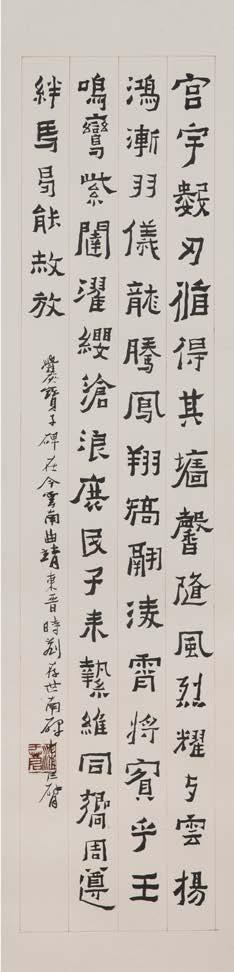 宮宇數刃循得其墻馨隨風烈耀與雲揚
鴻漸羽儀龍騰鳳翔矯翮淩霄將賓乎王
鳴鸞紫闥濯纓滄浪庶民子來縶維同嚮周遵
絆馬曷能赦放
爨寶子碑在今雲南曲靖東晉時刻存世南碑